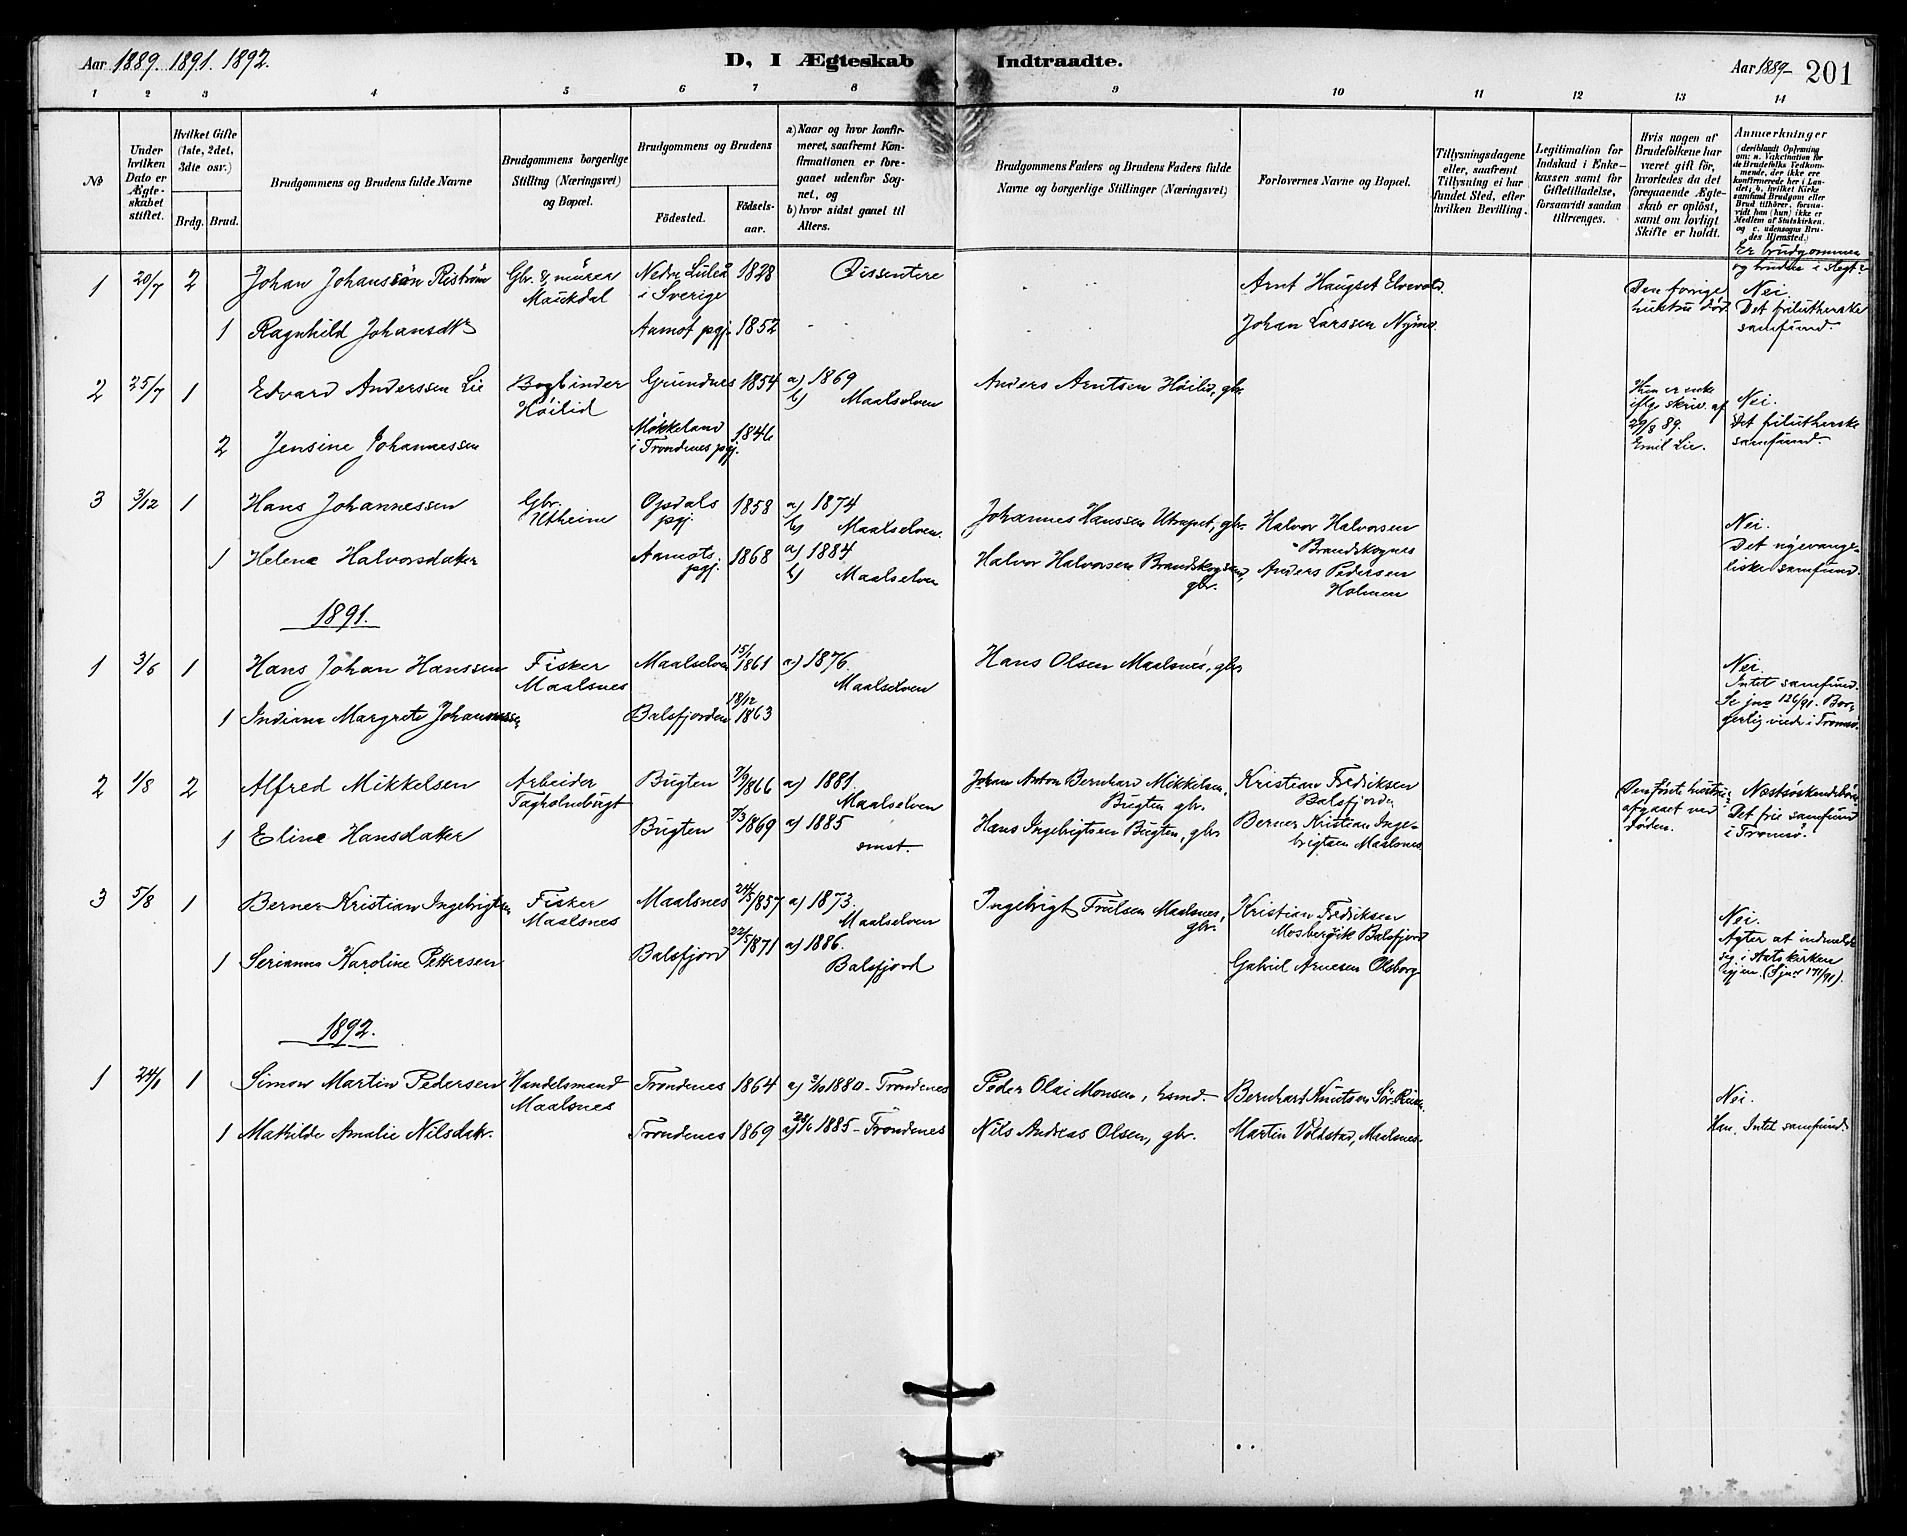 Aar 1889. 1891. 1892.
D, I Ægteskab Indtraadte.
Aar 1889- 201
1 2 3 4 5 6 7 8 9 10 11 12 13 14
No
Under hvilken Dato er Ægteskabet stiftet.
Hvilket Gifte (1ste, 2det, 3die osv.)
Brdg. Brud.
Brudgommens og Brudens fulde Navne
Brudgommens borgerlige Stilling (Næringsvei) og Bopæl.
Brudgommens og Brudens
Födested.
Födselsaar.
a) Naar og hvor konfirmeret, saafremt Konfirmationen er foregaaet udenfor Sognet, og
b) hvor sidst gaaet til Alters.
Brudgommens Faders og Brudens Faders fulde Navne og borgerlige Stillinger (Næringsvei)
Forlovernes Navne og Bopæl.
Tillysningsdagene eller, saafremt Tillysning ei har fundet Sted, efter hvilken Bevilling.
Legitimation for Indskud i Enkekassen samt for Giftetilladelse, forsaavidt saadan tiltrænges.
Hvis nogen af Brudefolkene har været gift för, hvorledes da det foregaaende Ægteskab er oplöst, samt om lovligt Skifte er holdt.
Anmærkninger
(deriblandt Oplysning om: a. Vakcination for de Brudefolks Vedkommende, der ikke ere konfirmerede her i Landet; b. hvilket Kirkesamfund Brudgom eller Brud tilhörer, forsaavidt han (hun) ikke er Medlem af Statskirken, og c. udensogns Brudes Hjemsted.)
Er brudgommen og bruden i slegt?
1 20/7 2 Johan Johanssön Riström Gbr. & murer Nedre Luleå 1828 Dissentere Arnt Haugset Elvevold. Den forrige Nei.
Mauskdal i Sverige hustru död. Det frilutherske
1 Ragnhild Johansdtr Aamot pgj. 1852 Johan Larssen Nymo. samfund.
2 25/7 1 Edvard Anderssen Lie Bogbinder Grundnes 1854 a) 1869 Anders Arntsen Höilid, gbr.
Höilid b) Maalselven
Hun er enke iflg. skriv. af 29/8 89. Emil Lie.
Nei. Det frilutherske samfund.
2 Jensine Johannessen Mökkeland 1846
i Trondenes pgj.
3 3/12 1 Hans Johannessen Gbr. Opdals 1858 a) 1874 Johannes Hanssen Utrapet, gbr. Halvor Halvorsen
Utheim pgj. b) Maalselven. Brandskognes
1 Helene Halvorsdater Aamots 1868 a) 1884 Halvor Halvorsen Brandskognes, Anders Pedersen
pgj. b) Maalselven gbr. Holmen
Nei.
Det nyevangeliske samfund.
1891.
1 3/6 1 Hans Johan Hanssen Fisker Maalselven 15/1 1861 a) 1876. Hans Olsen Maalsnes, gbr
Maalsnes Maalselven
1 Indiana Margrete Johannessen Balsfjorden 18/12 1863
Nei.
Intet samfund.
Se jno 126/91. Borgerlig viede i Tromsö.
2 1/8 2 Alfred Mikkelsen Arbeider Bugten 7/9 1866 a) 1881. Johan Anton Bernhard Mikkelsen, Kristian Fredriksen
Maalselven Bugten gbr. Balsfjorden
1 Eline Hansdater Bugten 7/3 1869 a) 1885 Hans Ingebrigtsen Bugten, gbr Berner Kristian Ingebrigtsen Maalsnes
smst.
Den förste hustru afgaaet ved döden.
Næstsöskendebörn
Det frie samfund
i Tromsö.
3 5/8 1 Berner Kristian Ingebrigtsen Fisker Maalsnes 24/5 1857 a) 1873. Ingebrigt Trulsen Maalsnes, Kristian Fredriksen
Maalsnes Maalselven gbr. Balsfjord
1 Serianna Karoline Pettersen Balsfjord 22/5 1871 a) 1886. Gabriel Arnesen Olsborg
Balsfjord
Nei.
Agter at indmelde
sig i statskirken
igjen. (Sjno 171/91).
1892.
1 24/1 1 Simon Martin Pedersen Handelsmand Trondenes 1864 a) 3/10 1880 - Trondenes Peder Olai Monsen, husmd. Bernhard Knutsen
Maalsnes
1 Mathilde Amalie Nilsdatr. Trondenes 1869 a) 28/6 1885 - Trondenes Nils Andreas Olsen, gbr. Martin Voldstad, Maalsnes.
Nei.
Han. Intet samfund.